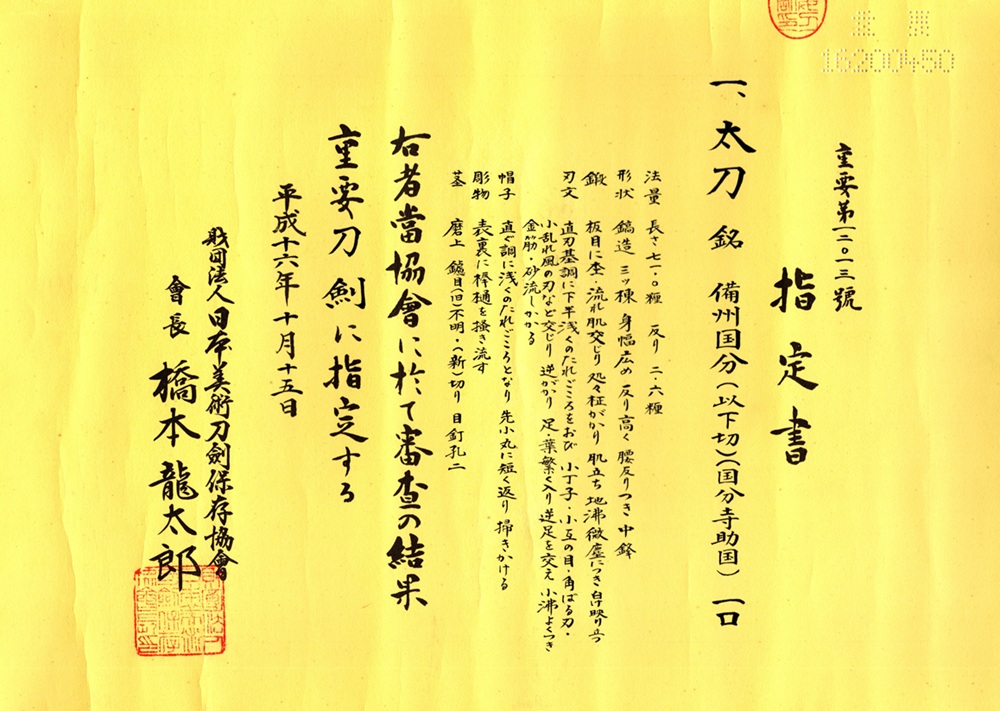 重要第一二〇一三號
指定書
一、太刀 銘 備州国分(以下切)(国分寺助国) 一口
法量 長さ七一・〇糎 反り 二・六糎
形状 鎬造 三ッ棟 身幅広め 反り高く 腰反りつき 中鋒
鍛 板目に杢・流れ肌交じり 処々柾がかり 肌立ち 地沸微塵につき 白け映り立つ
刃文 直刃基調に下半浅くのたれごころをおび 小丁子・小互の目・角ばる刃・
小乱れ風の刃など交じり 逆がかり 足・葉繁く入り 逆足を交え 小沸よくつき
金筋・砂流しかかる
帽子 直ぐ調に浅くのたれごころとなり 先小丸に短く返り 掃きかける
彫物 表裏に棒樋を掻き流す
茎 磨上 鑢目(旧)不明・(新)切り 目釘孔二
右者當協會に於て審査の結果
重要刀劍に指定する
平成十六年十月十五日
財団法人日本美術刀劍保存協會
會長 橋本龍太郎
16200450